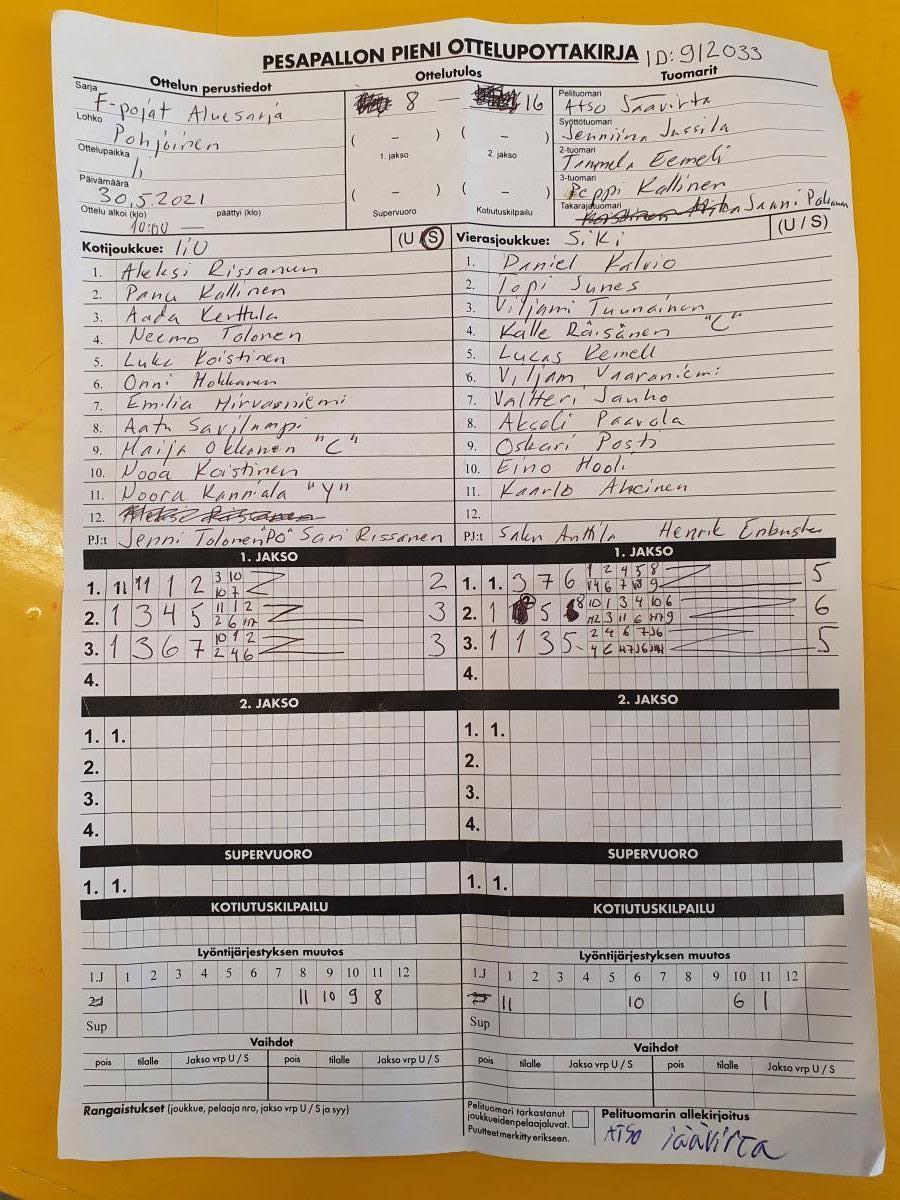 PESÄPALLON PIENI OTTELUPÖYTÄKIRJA ID: 912033
Ottelun perustiedot Ottelutulos Tuomarit
Sarja F-pojat Aluesarja
8 — 16
Pelituomari Atso Säävirta
Lohko Pohjoinen
Syöttötuomari Jenniina Jussila
Ottelupaikka Ii
( – ) ( – )
1. jakso 2. jakso
2-tuomari Tammela Eemeli
Päivämäärä 30.5.2021
3-tuomari Peppi Kallinen
( – ) ( – )
Supervuoro Kotiutuskilpailu
Ottelu alkoi (klo) 10:00 päättyi (klo) —
Takarajatuomari Saani
Kotijoukkue: IiU (U / S) Vierasjoukkue: SiKi (U / S)
1. Aleksi Rissanen 1. Daniel Kalvio
2. Panu Kallinen 2. Topi Sunes
3. Aada Kerttula 3. Viljami Tuunainen
4. Neemo Tolonen 4. Kalle Räisänen "C"
5. Luka Koistinen 5. Lucas Remell
6. Onni Hokkanen 6. Viljam Vaaraniemi
7. Emilia Hirvasniemi 7. Valtteri Janho
8. Aatu Savilampi 8. Akseli Paavola
9. Maija Okkonen "C" 9. Oskari Posti
10. Nooa Koistinen 10. Eino Hooli
11. Noora Kanniala "Y" 11. Kaarlo Ahcinen
12. 12.
PJ:t Jenni Tolonen "PO" Sari Rissanen PJ:t Saku Anttila Henrik Enbuske
1. JAKSO 1. JAKSO
1. 11 11 1 2 3 10 2 1. 1. 3 7 6 1 2 4 5 8 5
10 7
2. 1 3 4 5 11 1 2 3 2. 1 5 10 1 3 4 10 6 6
3. 1 3 6 7 10 1 2 3 3. 1 1 3 5 5
2 4 6
4. 4.
2. JAKSO 2. JAKSO
1. 1. 1. 1.
2. 2.
3. 3.
4. 4.
SUPERVUORO SUPERVUORO
1. 1. 1. 1.
KOTIUTUSKILPAILU KOTIUTUSKILPAILU
Lyöntijärjestyksen muutos Lyöntijärjestyksen muutos
1.J 1 2 3 4 5 6 7 8 9 10 11 12 1.J 1 2 3 4 5 6 7 8 9 10 11 12
11 10 9 8 11 10 6 1
Sup Sup
Vaihdot Vaihdot
pois tilalle Jakso vrp U / S pois tilalle Jakso vrp U / S pois tilalle Jakso vrp U / S pois tilalle Jakso vrp U / S
Rangaistukset (joukkue, pelaaja nro, jakso vrp U / S ja syy)
Pelituomari tarkastanut
joukkueiden pelaajaluvat.
Puutteet merkitty erikseen.
Pelituomarin allekirjoitus
Atso Säävirta